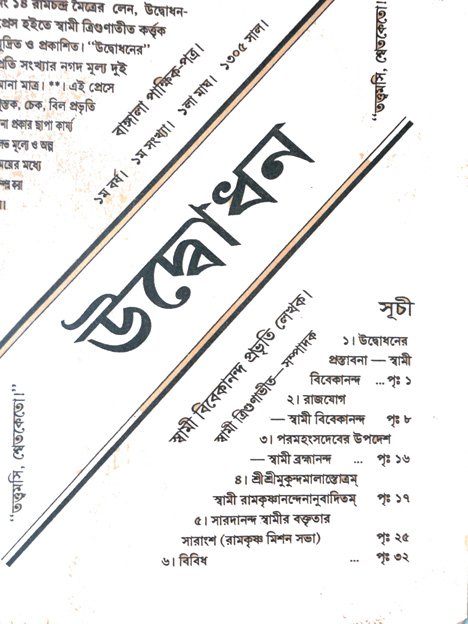 ১৪ রামচন্দ্র মৈত্রের লেন, উদ্বোধন-
প্রেস হইতে স্বামী ত্রিগুণাতীত কর্ত্তৃক
মুদ্রিত ও প্রকাশিত। “উদ্বোধনের”
প্রতি সংখ্যার নগদ মূল্য দুই
আনা মাত্র। **। এই প্রেসে
পুস্তক, চেক, বিল প্রভৃতি
নানা প্রকার ছাপা কার্য্য
মূল্যে ও অল্প
সময়ের মধ্যে
বাঙ্গালা পাক্ষিক-পত্র।
১ম বর্ষ। ১ম সংখ্যা। ১লা মাঘ। ১৩০৫ সাল।
“তত্ত্বমসি, শ্বেতকেতো।”
উদ্বোধন
স্বামী বিবেকানন্দ প্রভৃতি লেখক।
স্বামী ত্রিগুণাতীত—সম্পাদক
“তত্ত্বমসি, শ্বেতকেতো।”
সূচী
১। উদ্বোধনের
প্রস্তাবনা — স্বামী
বিবেকানন্দ ... পৃঃ ১
২। রাজযোগ
— স্বামী বিবেকানন্দ পৃঃ ৮
৩। পরমহংসদেবের উপদেশ
— স্বামী ব্রহ্মানন্দ ... পৃঃ ১৬
৪। শ্রীশ্রীমুকুন্দমালাস্তোত্রম্
স্বামী রামকৃষ্ণানন্দেনানুবাদিতম্ পৃঃ ১৭
৫। সারদানন্দ স্বামীর বক্তৃতার
সারাংশ (রামকৃষ্ণ মিশন সভা) পৃঃ ২৫
৬। বিবিধ ... পৃঃ ৩২